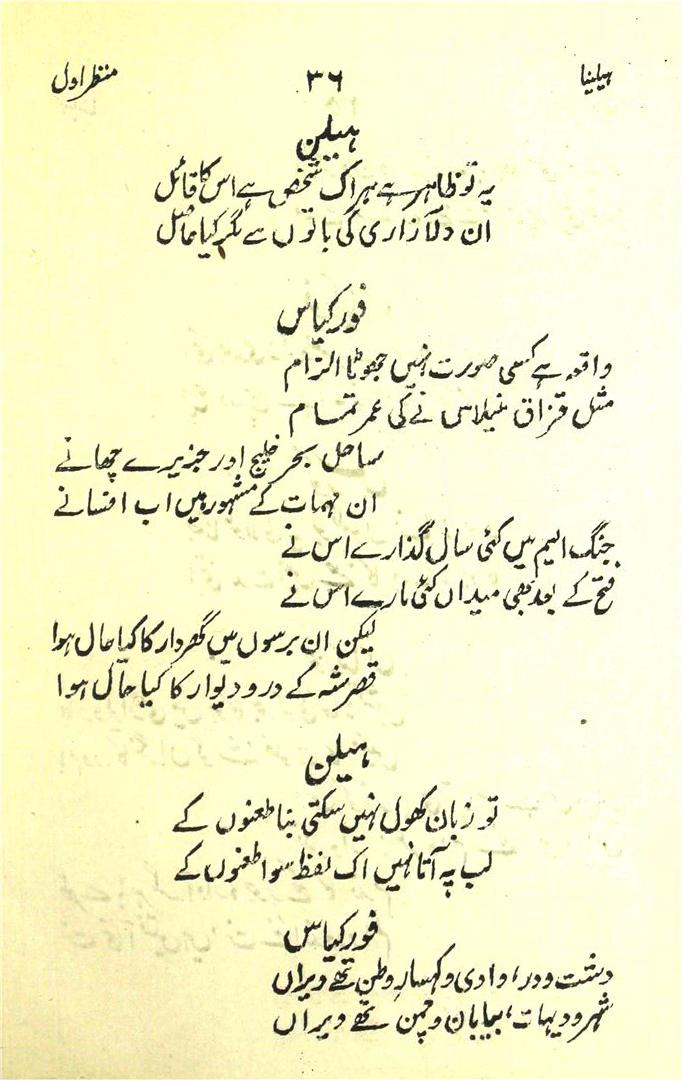 ہیلینا
۳۶
منظر اول
ہیلن
یہ تو ظاہر ہے ہر اک شخص ہے اس کا قائل
ان دلآزاری کی باتوں سے مگر کیا حاصل
فورکیاس
واقعہ ہے کسی صورت نہیں جھوٹا الزام
مثل قزاق منیلاس نے کی عمر تمام
ساحل بحر خلیج اور جزیرے چھانے
ان مہمات کے مشہور ہیں اب افسانے
جنگ الیم میں کئی سال گذارے اس نے
فتح کے بعد بھی میداں کئی مارے اس نے
لیکن ان برسوں میں گھر دار کا کیا حال ہوا
قصر شہ کے در و دیوار کا کیا حال ہوا
ہیلن
تو زبان کھول نہیں سکتی بنا طعنوں کے
لب پہ آتا نہیں اک لفظ سوا طعنوں کے
فورکیاس
دشت و در، وادی و کہسارِ وطن تھے ویراں
شہر و دیہات، بیابان و چمن تھے ویراں